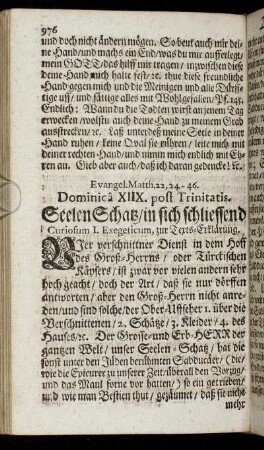 976
und doch nicht ändern mögen. So beut auch mir dei-
ne Hand/und machs ein End/was du mir aufferlegt/
mein GOTT/das hilff mir tragen/ inzwischen dieß
deine Hand mich halte fest/ ꝛc. thue diese freundliche
Hand gegen mich und die Meinigen und alle Dürff-
tige uff/ und sättige alles mit Wohlgefallen/Ps. 145.
Endlich: Wann du die Todten wirst an jenem Tag
erwecken/wollstu auch deine Hand zu meinem Grab
ausstrecken/ ꝛc. Laß unterdeß meine Seele in deiner
Hand ruhen/ keine Qval sie rühren/ leite mich mit
deiner rechten Hand/und nimm mich endlich mit Eh-
ren an. Gieb aber auch/daß ich daran gedencke! ꝛc.
Evangel. Matth. 22, 24-46.
Dominicâ XIIX. post Trinitatis.
Seelen Schatz/in sich schliessend
Curiosum I. Exegeticum, zur Texts-Erklärung.
Der verschnittner Dienst in dem Hoff
des Groß-Herrns / oder Türckischen
Käysers / ist zwar vor vielen andern sehr
hoch geacht/ doch der Art/ daß sie nur dörffen
antworten/ aber den Groß-Herrn nicht anre-
den/und sind solche/der Ober-Uffseher 1. über die
Verschnittenen / 2. Schätze/ 3. Kleider/ 4. des
Hauses/ꝛc. Der Grosse-und Erb-HERR der
gantzen Welt/ unser Seelen-Schatz / hat die
sonst unter den Jüden berühmten Sadducäer / (die/
wie die Epicurer zu unserer Zeit/überall den Vorzug/
und das Maul forne vor hatten/) so ein getrieben/
und wie man Bestien thut/ gezäumet/ daß sie nicht
mehr